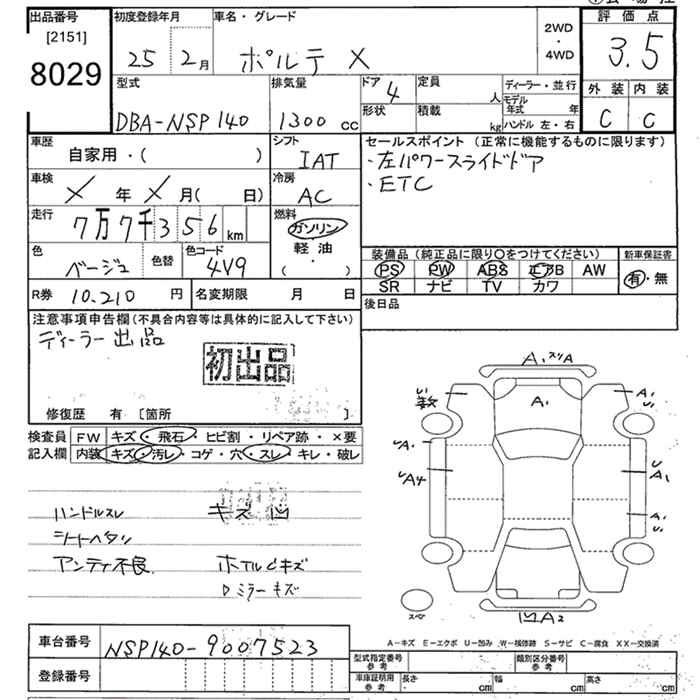 出品番号
[2151]
8029
初度登録年月
25 2月
車名・グレード
ポルテ X
2WD
・
4WD
評価点
3.5
外装 内装
C C
型式
DBA-NSP140
排気量
1300 cc
ドア
4
形状
定員
人
積載
kg
ディーラー・並行
モデル年式 年
ハンドル 左・右
車歴
自家用・( )
シフト
IAT
車検
X 年 X 月( 日)
冷房
AC
走行
7万7千356 km
燃料
ガソリン
軽油
( ・ )
色
ベージュ
色替
色コード
4V9
R券 10,210 円
名変期限 月 日
セールスポイント (正常に機能するものに限ります)
・左パワースライドドア
・ETC
装備品 (純正品に限り○をつけてください)
PS PW ABS エアB AW
SR ナビ TV カワ
新車保証書
有・無
後日品
注意事項申告欄(不具合内容等は具体的に記入して下さい)
ディーラー出品
初出品
修復歴 有 [箇所 ]
検査員 FW キズ・飛石・ヒビ割・リペア跡・×要
記入欄 内装 キズ・汚レ・コゲ・穴・スレ・キレ・破レ
ハンドルスレ キズ凹
シートヘタリ
アンテナ不良 ホイルキズ
ミラーキズ
A1 スリA
A1
A1
U
A1
UA4
U
A1
A1
U
スペア
凹A2
A-キズ E-エクボ U-凹み W-補修跡 S-サビ C-腐食 XX-交換済
車台番号 NSP140-9007523
登録番号
型式指定番号
参考
類別区分番号
参考
車庫証明用
参考
長さ cm 幅 cm 高さ cm